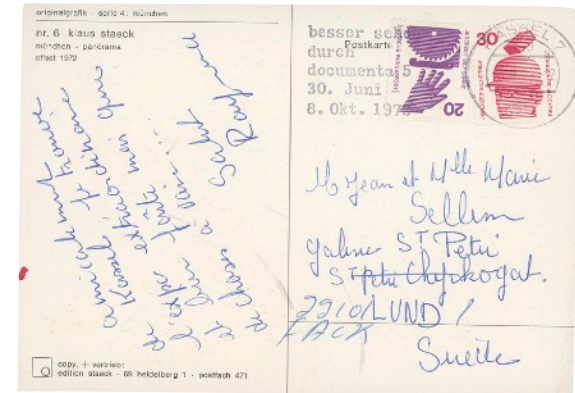 originalgrafik - serie 4: münchen
nr. 6 klaus staeck
münchen - panorama
offset 1972
Amicalement
de Kassel. Je trouve
l'expo extraordinaire
et bien faite mais
de choses à voir...
Salut
copy. + vertrieb:
edition staeck - 69 heidelberg 1 - postfach 471
besser sehen
durch
documenta 5
30. Juni
8. Okt. 197
Postkarte
30
20
KASSEL 7
M Jean et Mlle Marie
Sellem
galerie St Petri
St Petri Chyrkogat.
22101 LUND 1
FACK
Suède